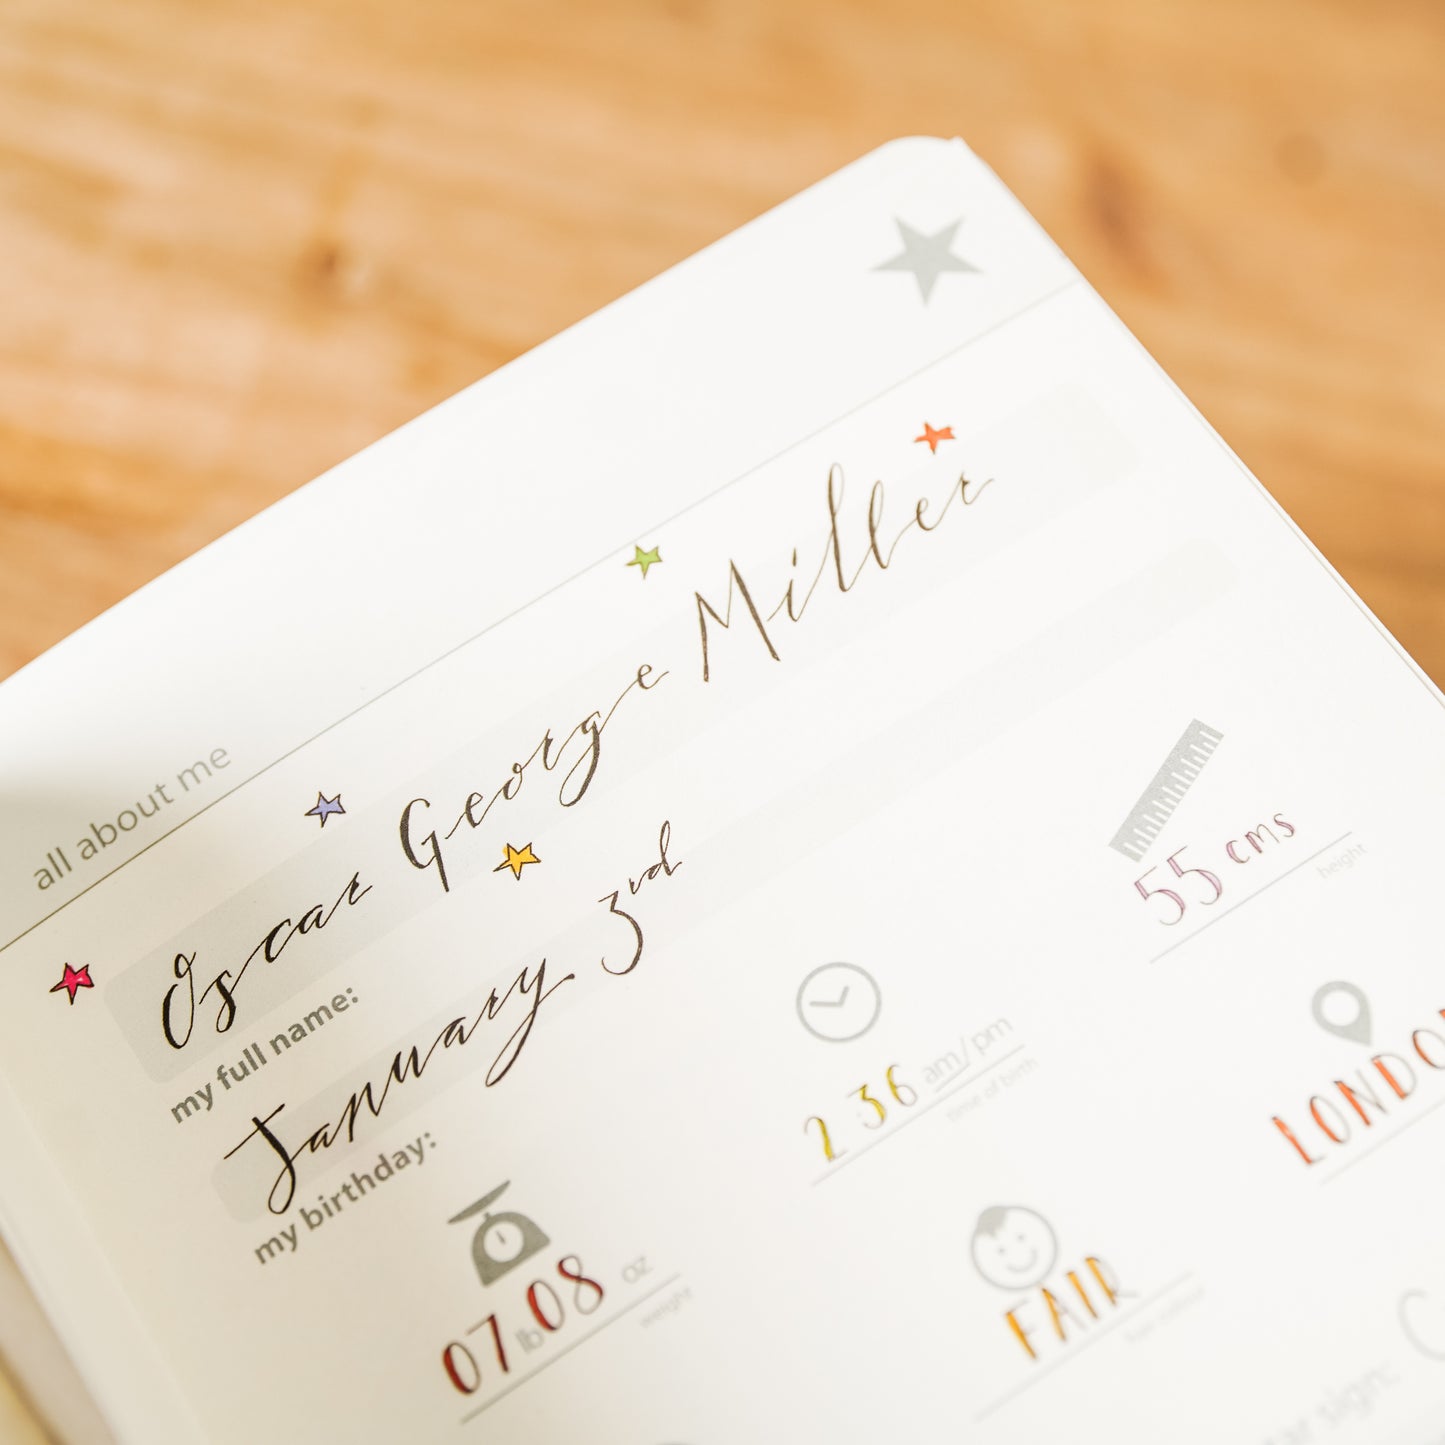 all about me
Oscar George Miller
my full name:
January 3rd
my birthday:
55 cms
height
2 36 am/pm
time of birth
LONDO
07 lb 08 oz
weight
FAIR
sign: